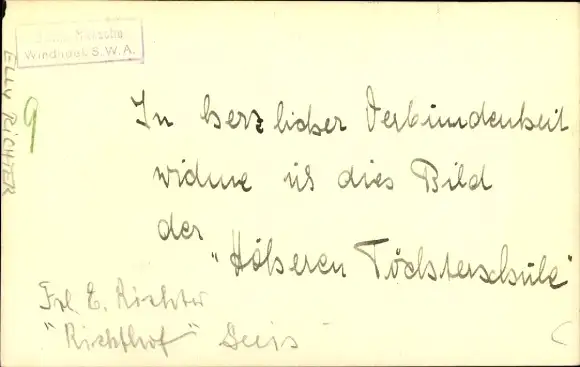 Windhoek S.W.A.
ELLY RICHTER
9
In herzlicher Verbundenheit
widme ich dies Bild
der
"Höheren Töchterschule"
Frl. E. Richter
"Richthof" Seis